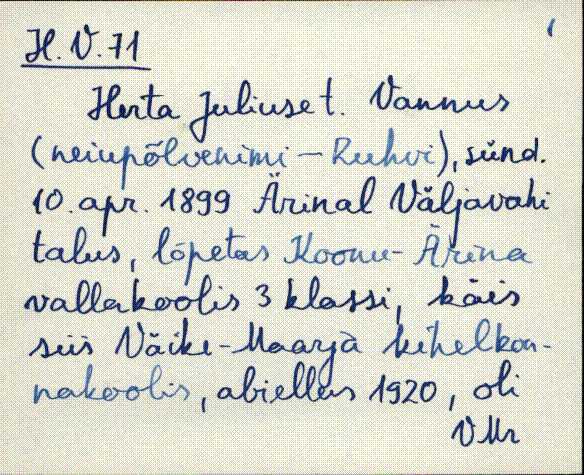 H. V. 71
Herta Juliuse t. Vannus
(neiupõlvenimi – Ruhvi), sünd.
10. apr. 1899 Ärinal Väljavahi
talus, lõpetas Koonu-Ärina
vallakoolis 3 klassi, käis
siis Väike-Maarja kihelkon-
nakoolis, abiellus 1920, oli
VMr